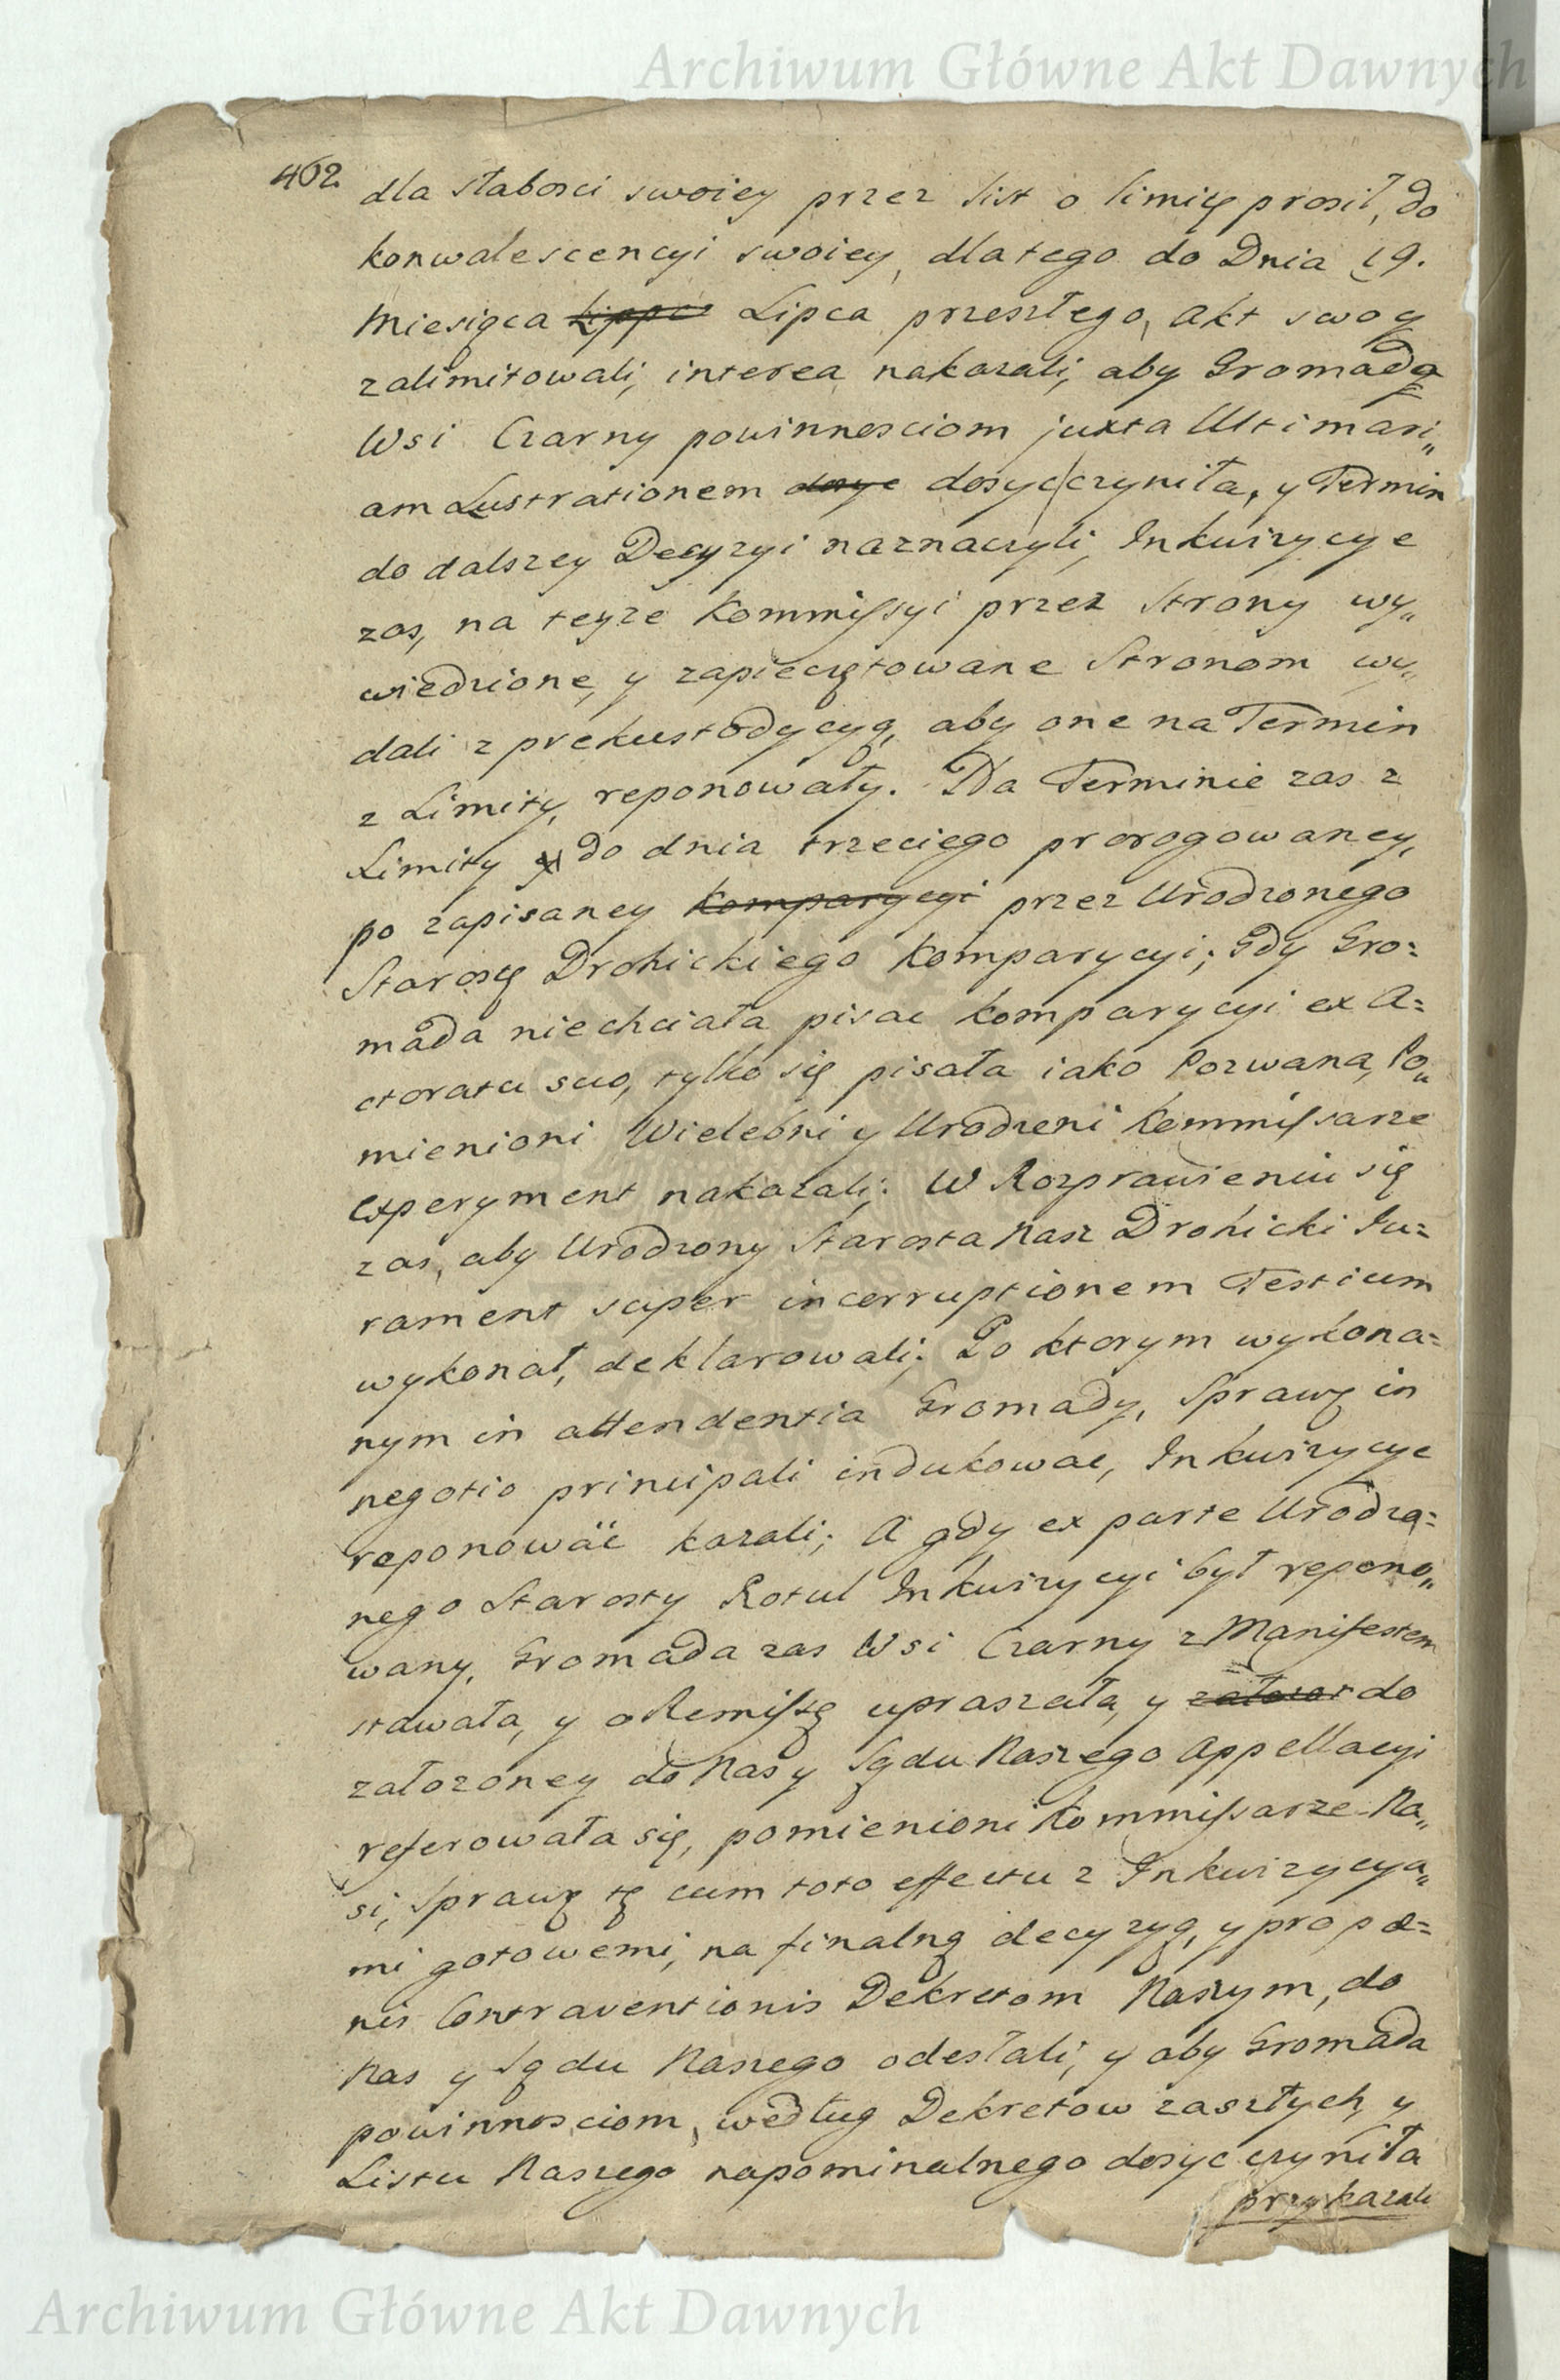 Archiwum Główne Akt Dawnych
462. dla słabosci swoiey przez list o limitę prosił, do
konwalescencyi swoiey, dlatego do Dnia 19.
Miesiąca Lippca Lipca przeszłego, Akt swoy
zalimitowali, interea nakazali, aby Gromada
Wsi Czarny powinnosciom juxta Ultimari„
am Lustrationem dosyc dosyc czyniła, y Termin
do dalszey Decyzyi naznaczyli, Inkwizycye
zas, na teyze Kommissyi przez Strony wy„
wiedzione, y zapieczętowane Stronom wy„
dali z prekustodycyą, aby one na Termin
z Limity, reponowały. Na Terminie zas z
Limity do dnia trzeciego prorogowaney,
po zapisaney komparycyi przez Urodzonego
Starostę Drohickiego Komparycyi; Gdy Gro=
mada niechciała pisac komparycyi ex A=
ctoratu suo, tylko się pisała iako Pozwana, Po„
mienioni Wielebni y Urodzeni Kommissarze
Experyment nakazali; W Rozprawieniu się
zas, aby Urodzony Starosta Nasz Drohicki Ju=
rament super incorruptionem Testium
wykonał, deklarowali; Po ktorym wykona=
nym in attendentia Gromady, Sprawę in
negotio principali indukowac, Inkwizycye
reponowac kazali; A gdy ex parte Urodzo=
nego Starosty Rotul Inkwizycyi był repono„
wany, Gromada zas Wsi Czarny z Manifestem
stawała, y o Remissę upraszała, y załozo do
załozoney do Nas y Sądu Naszego Appellacyi
referowała się, pomienioni Kommissarze Na„
si, Sprawę tę cum toto effectu z Inkwizycya„
mi gotowemi, na finalną decyzyą, y pro pæ=
nis Contraventionis Dekretom Naszym, do
Nas y Sądu Naszego odesłali, y aby Gromada
powinnosciom, według Dekretow zaszłych, y
Listu Naszego napominalnego dosyc czyniła
przykazali
Archiwum Główne Akt Dawnych